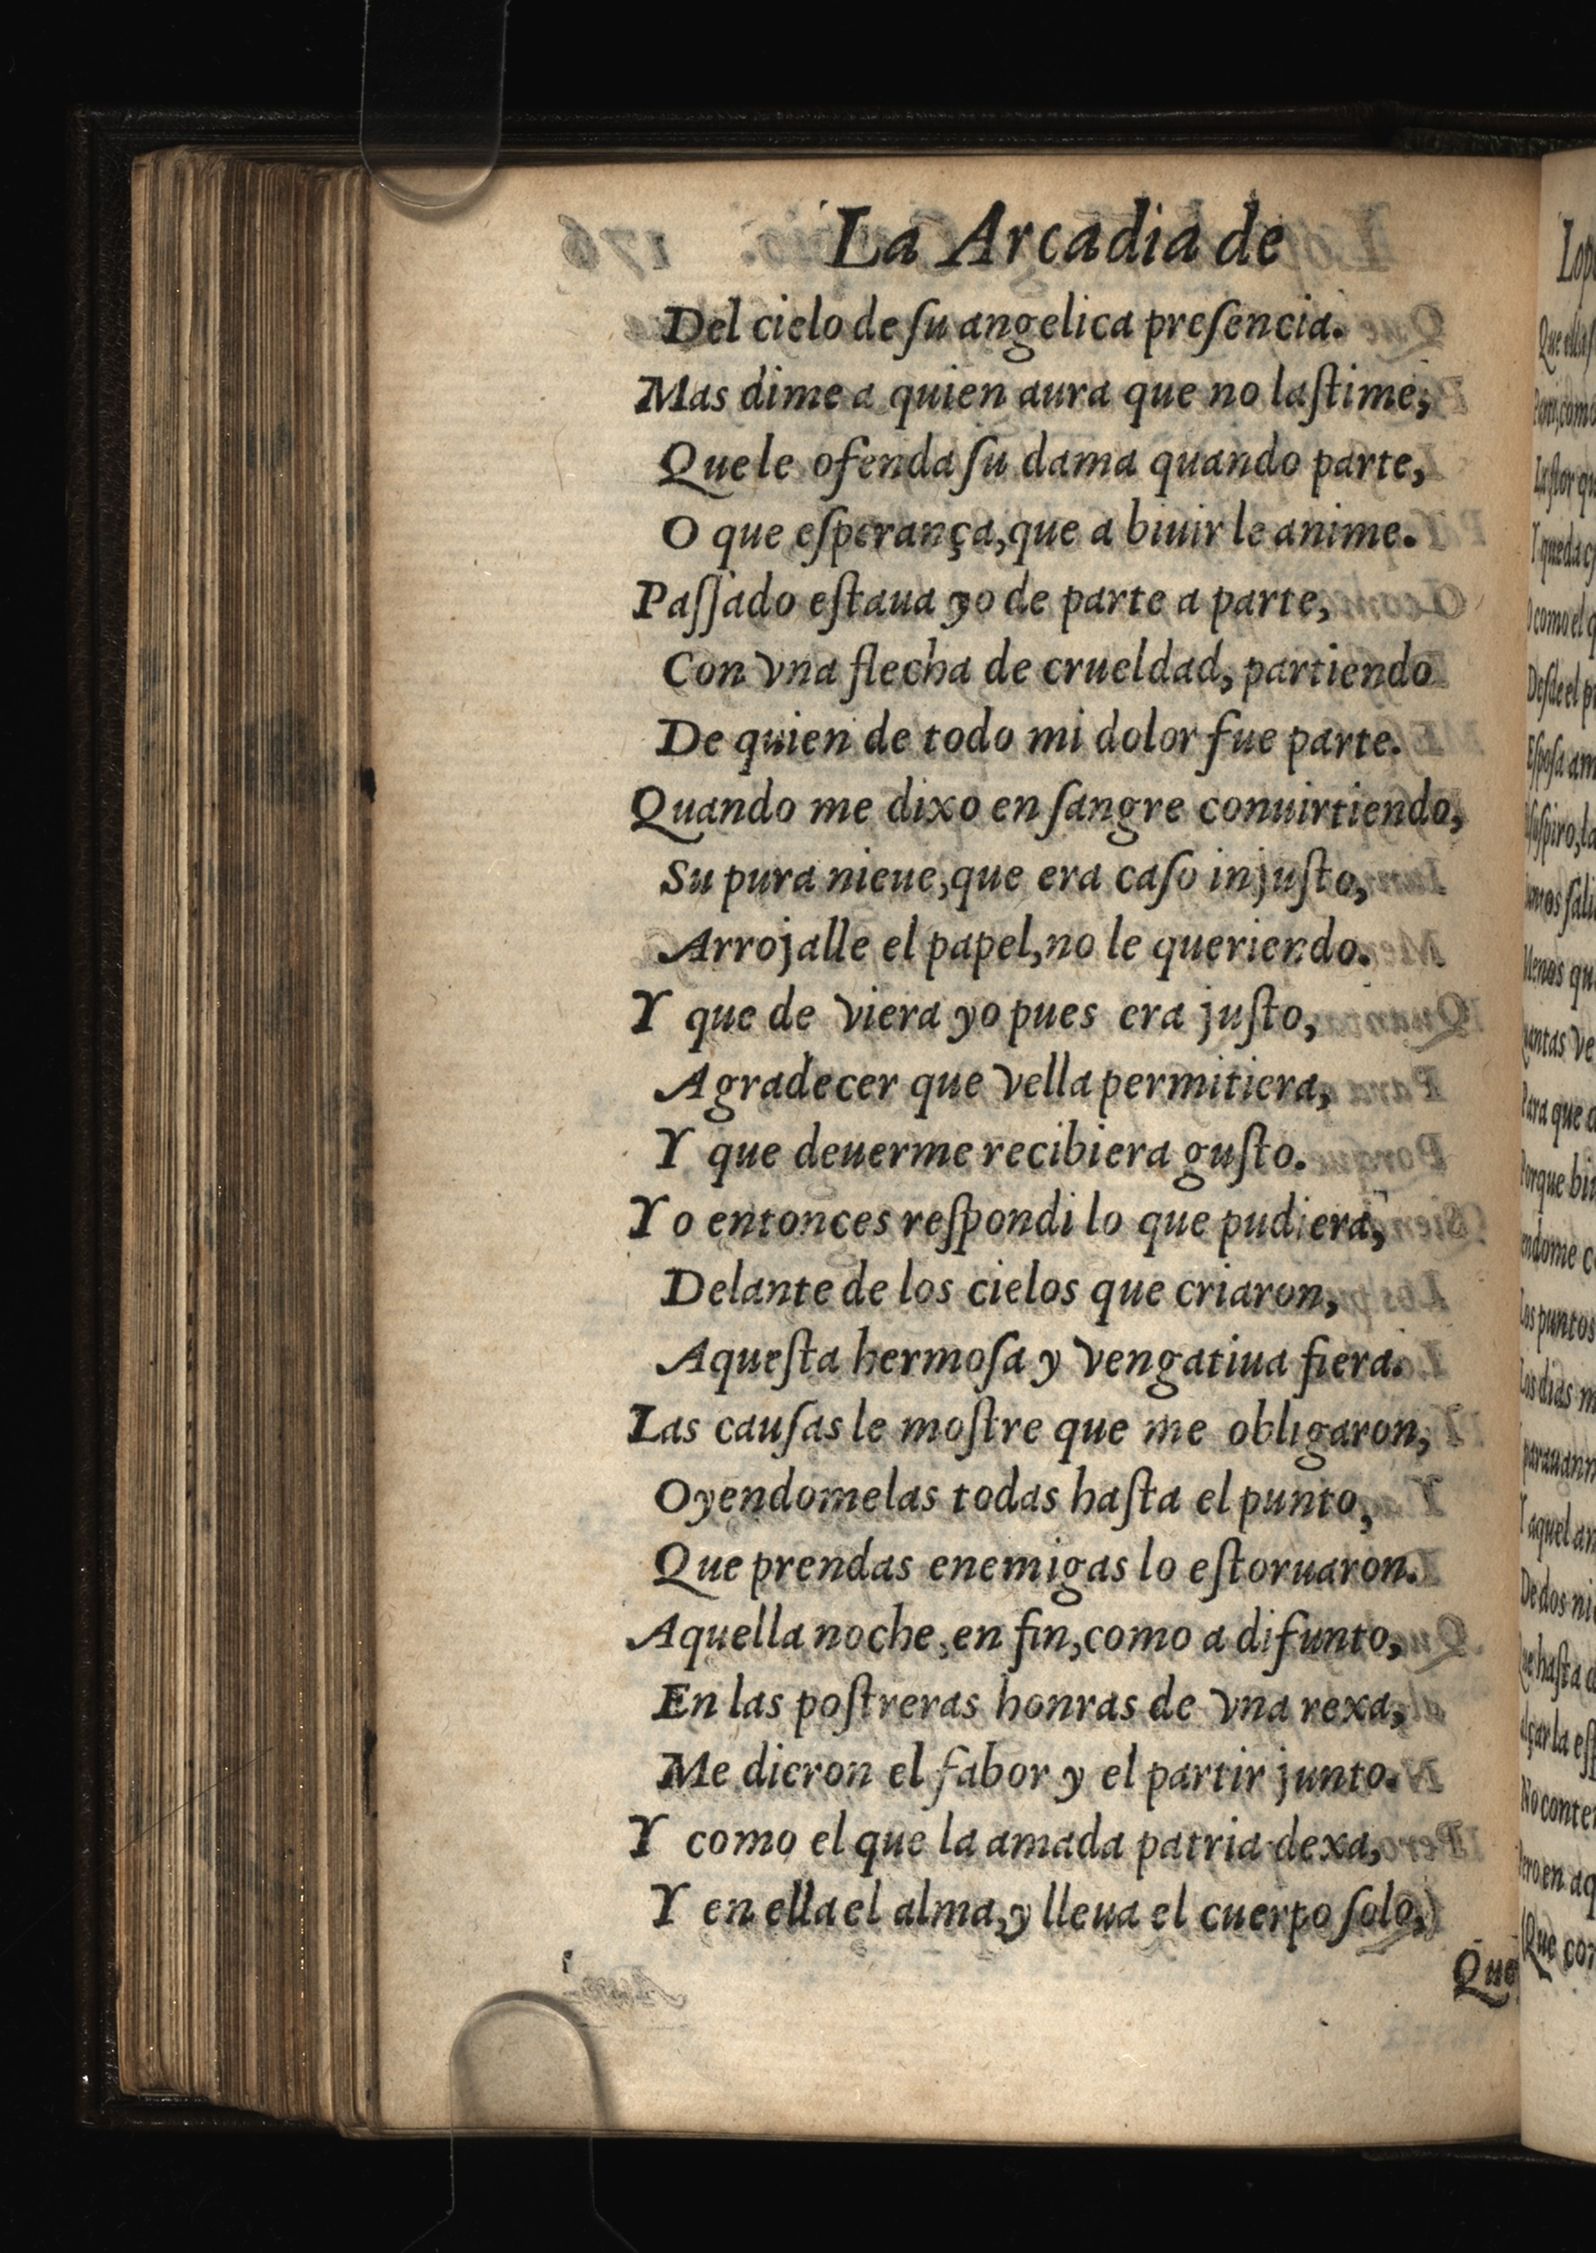 La Arcadia de
Del cielo de ſu angelica preſencia.
Mas dime a quien aura que no laſtime,
Que le ofenda ſu dama quando parte,
O que eſperança, que a biuir le anime.
Paſſado eſtaua yo de parte a parte,
Con vna flecha de crueldad, partiendo
De quien de todo mi dolor fue parte.
Quando me dixo en ſangre conuirtiendo,
Su pura nieue, que era caſo injuſto,
Arrojalle el papel, no le queriendo.
Y que de viera yo pues era juſto,
Agradecer que vella permitiera,
Y que deuerme recibiera guſto.
Yo entonces reſpondi lo que pudiera,
Delante de los cielos que criaron,
Aqueſta hermoſa y vengatiua fiera.
Las cauſas le moſtre que me obligaron,
Oyendomelas todas haſta el punto,
Que prendas enemigas lo eſtoruaron.
Aquella noche, en fin, como a difunto,
En las poſtreras honras de vna rexa,
Me dieron el fabor y el partir junto.
Y como el que la amada patria dexa,
Y en ella el alma, y lleua el cuerpo ſolo,
Que